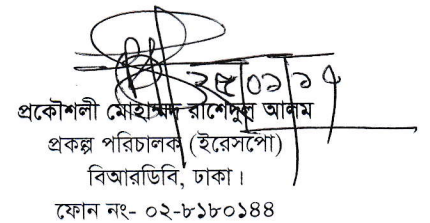 ২৫|০১|১৭
প্রকৌশলী মোহাম্মদ রাশেদুল আলম
প্রকল্প পরিচালক (ইরেসপো)
বিআরডিবি, ঢাকা।
ফোন নং- ০২-৮১৮০১৪৪